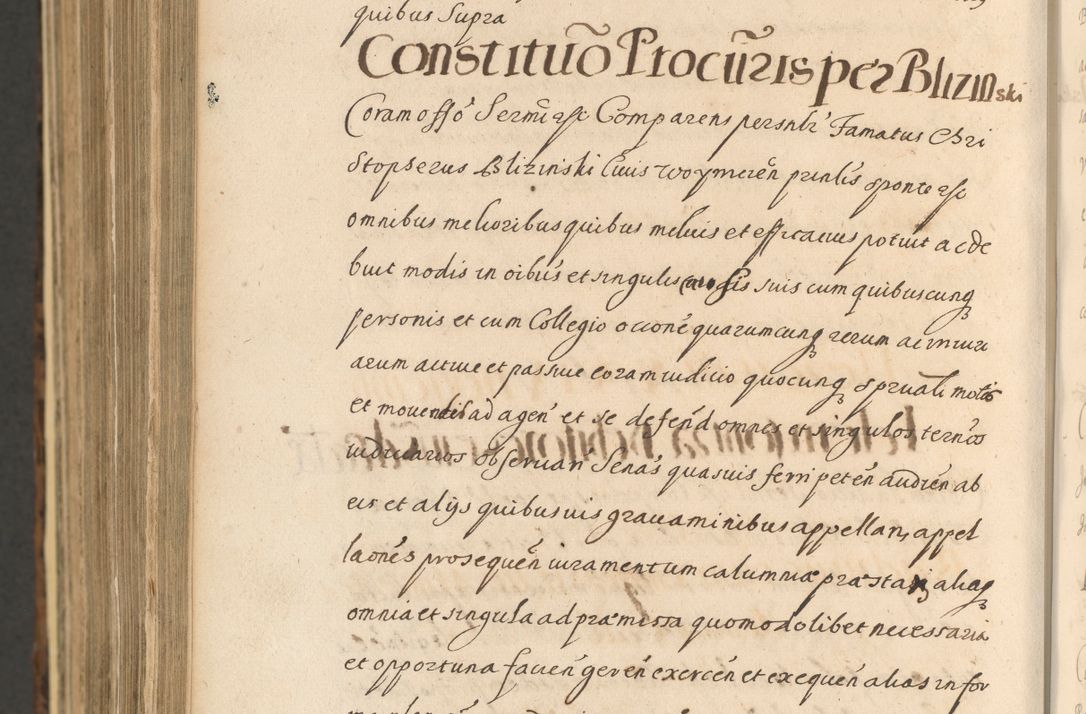 quibus Supra
Constituõ Procur̃ris per Blizinski
Coram offõ Sermĩ etc Comparens persnlr̃ Famatus Chri
stopherus Blizinski Ciuis woymicen̄ pr̃nlis sponte etc
omnibus melioribus quibus melius et efficacius potuit ac de
buit modis in oibus et singulis causis suis cum quibuscunq
personis et cum Collegio occone quarumcunq rerum ac iniuri
arum actiue et passiue coram iudicio quocunq spruali motis
et mouendis ad agen̄ et se defend omnes et singulos ternos
iudiciarios obseruan̄ Senas quasuis ferri peten̄ audien̄ ab
eis et alijs quibusuis grauaminibus appellan, appel
laones prosequen̄ iuramentum calumniæ præstan aliaq
omnia et singula ad præmissa quomodolibet necessaria
et opportuna facien̄ geren̄ exercen̄ et exequen̄ alias in for